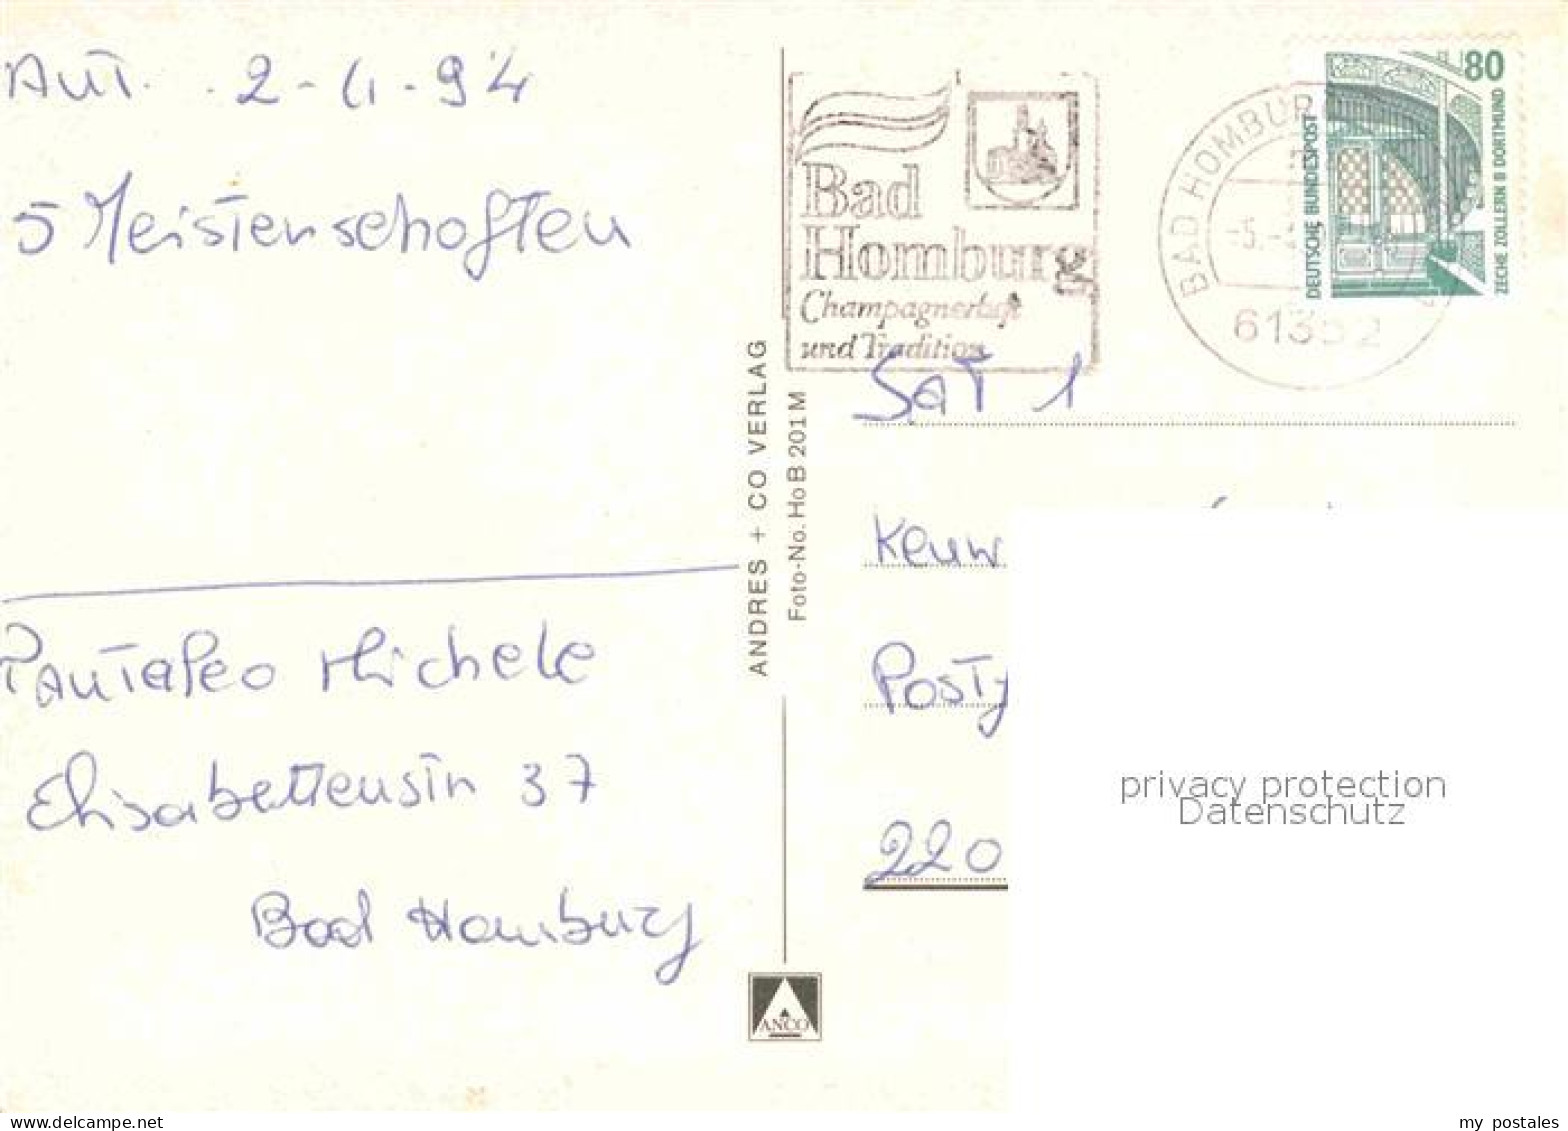 Ant. 2-4-94
5 Meistenschoften
Pantaleo Michele
Elisabettenstn 37
Bad Homburg
ANDRES + CO VERLAG
Foto-No. HoB 201 M
ANCO
Bad
Homburg
Champagnerluft
und Tradition
BAD HOMBUR
-5.-
61352
80
DEUTSCHE BUNDESPOST
ZECHE ZOLLERN II DORTMUND
SAT 1
220
privacy protection
Datenschutz
www.oldthing.de
my postales